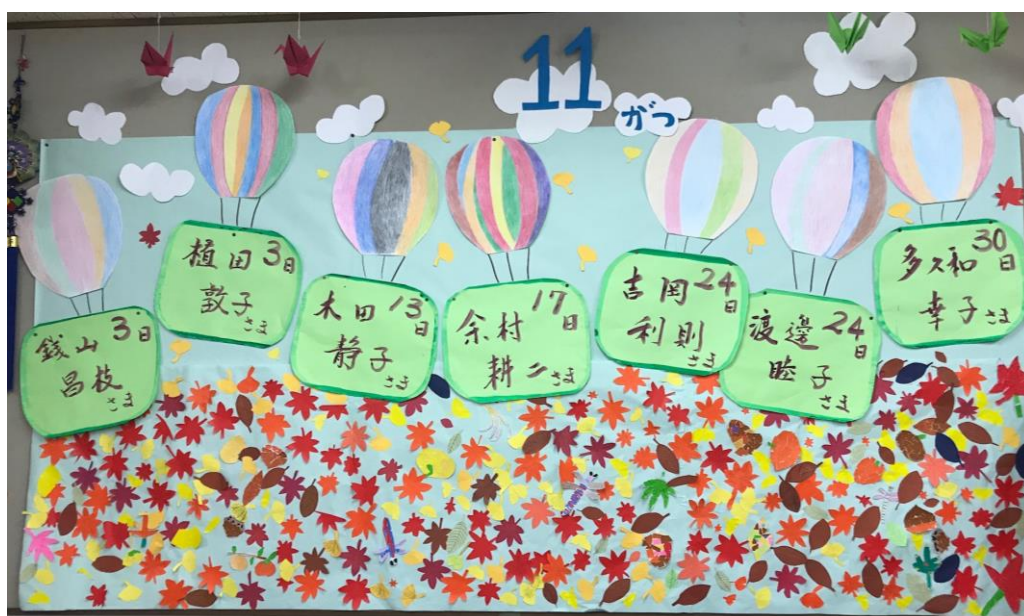 11
がつ
銭山 3日
昌枝
さま
植田 3日
敦子
さま
木田 13日
静子
さま
余村 17日
耕二さま
吉岡 24日
利則
さま
渡邊 24日
睦子
さま
多久和 30日
幸子さま